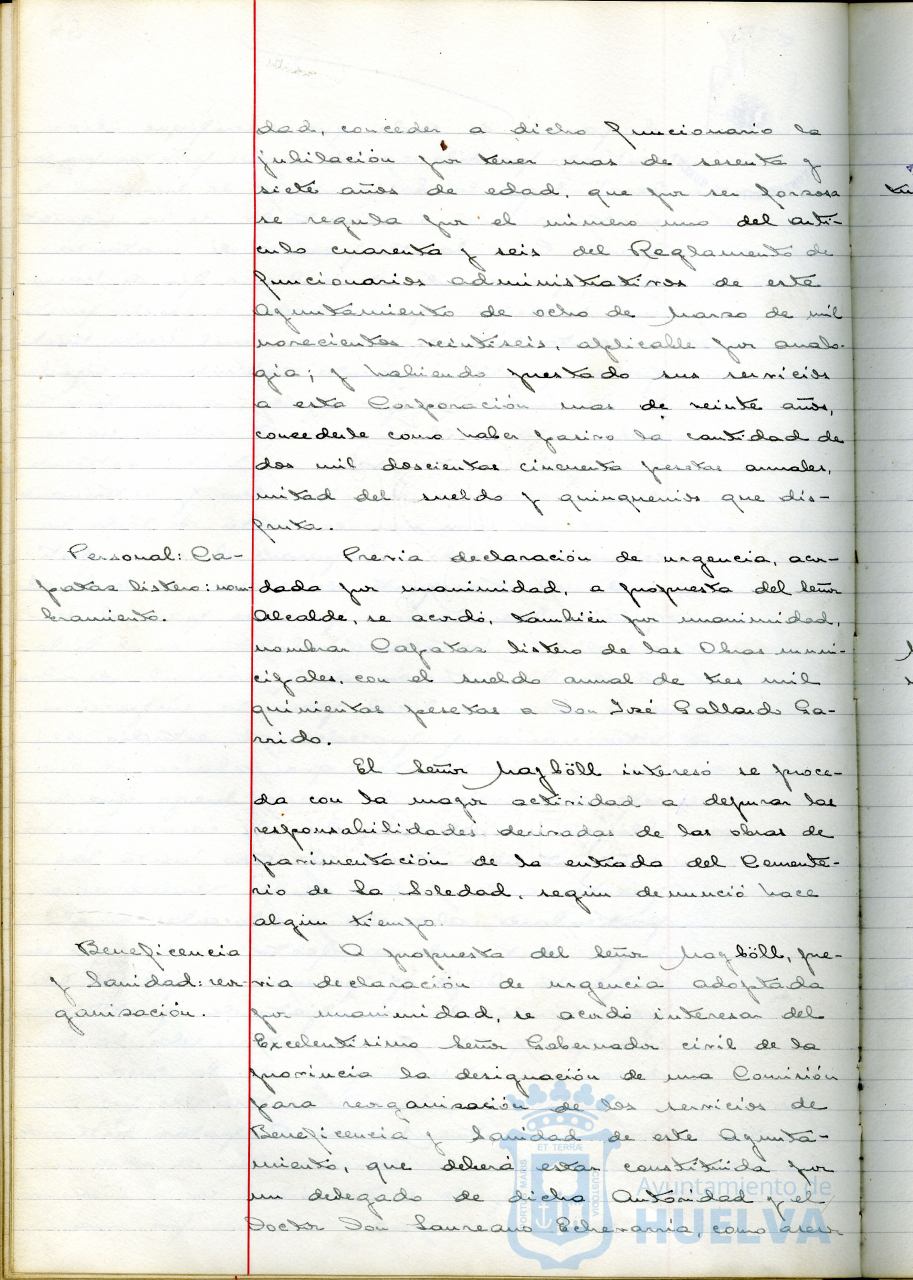 dad, conceder a dicho funcionario la
jubilación por tener mas de sesenta y
siete años de edad, que por ser forzosa
se regula por el número uno del artí-
culo cuarenta y seis del Reglamento de
funcionarios administrativos de este
Ayuntamiento de ocho de Marzo de mil
novecientos veintiseis, aplicable por analo-
gia; y habiendo prestado sus servicios
a esta Corporación mas de veinte años,
concederle como haber pasivo la cantidad de
dos mil doscientas cincuenta pesetas anuales,
mitad del sueldo y quinquenios que dis-
fruta.
Personal: Ca-
pataz listero: nom-
bramiento.
Previa declaración de urgencia, acor-
dada por unanimidad, a propuesta del Señor
Alcalde, se acordó, también por unanimidad,
nombrar Capataz listero de las Obras muni-
cipales, con el sueldo anual de tres mil
quinientas pesetas a Don José Gallardo Ga-
rrido.
El Señor Magböll interesó se proce-
da con la mayor actividad a depurar las
responsabilidades derivadas de las obras de
pavimentación de la entrada del Cemente-
rio de la Soledad, según denunció hace
algún tiempo.
Beneficencia
y Sanidad: reor-
ganización.
A propuesta del Señor Magböll, pre-
via declaración de urgencia adoptada
por unanimidad, se acordó interesar del
Excelentísimo Señor Gobernador civil de la
provincia la designación de una Comisión
para reorganización de los servicios de
Beneficencia y Sanidad de este Ayunta-
miento, que deberá estar constituida por
un delegado de dicha Autoridad y el
Doctor Don Laureano Echevarría, como
ET TERRAE
PORTUS MARIS
CUSTODIA
Ayuntamiento de
HUELVA